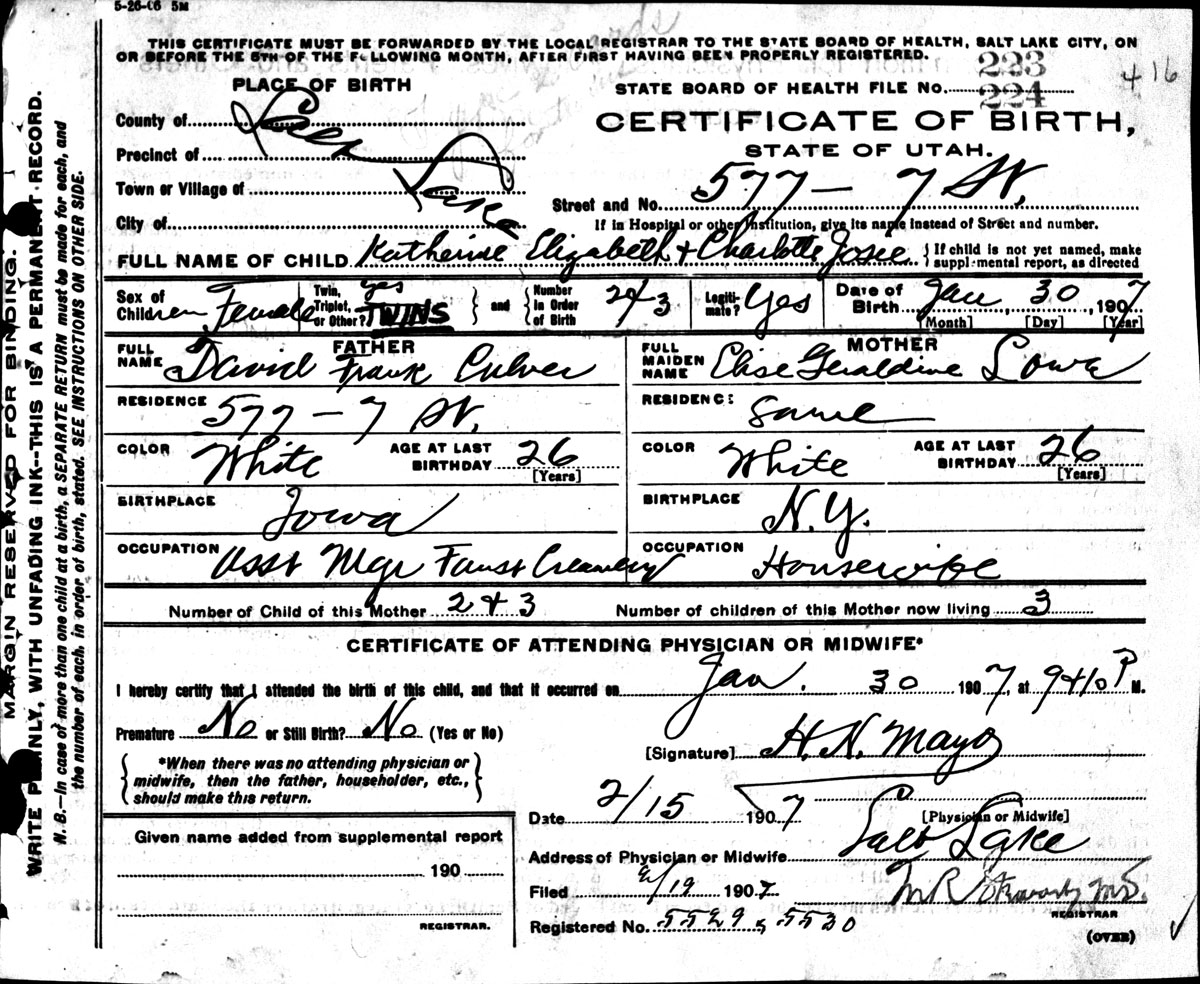 5-26-06 5M
THIS CERTIFICATE MUST BE FORWARDED BY THE LOCAL REGISTRAR TO THE STATE BOARD OF HEALTH, SALT LAKE CITY, ON
OR BEFORE THE 5TH OF THE FOLLOWING MONTH, AFTER FIRST HAVING BEEN PROPERLY REGISTERED.
223
416
PLACE OF BIRTH
STATE BOARD OF HEALTH FILE NO. 224
County of Salt Lake
CERTIFICATE OF BIRTH,
Precinct of
STATE OF UTAH.
Town or Village of
Street and No. 577 - 7 St.
City of
If in Hospital or other Institution, give its name instead of Street and number.
FULL NAME OF CHILD Katherine Elizabeth + Charlotte Josie {If child is not yet named, make
supplemental report, as directed
Sex of Children Female Twin, Triplet, or Other? yes TWINS } and { Number in Order of Birth 2 & 3 Legiti-mate? Yes Date of Birth Jan 30, 1907
[Month] [Day] [Year]
FATHER
MOTHER
FULL NAME David Frank Culver
FULL MAIDEN NAME Elise Geraldine Lowe
RESIDENCE 577 - 7 St.
RESIDENCE Same
COLOR White AGE AT LAST BIRTHDAY 26 [Years]
COLOR White AGE AT LAST BIRTHDAY 26 [Years]
BIRTHPLACE Iowa
BIRTHPLACE N.Y.
OCCUPATION Asst Mgr Faust Creamery
OCCUPATION Housewife
Number of Child of this Mother 2 & 3 Number of children of this Mother now living 3
CERTIFICATE OF ATTENDING PHYSICIAN OR MIDWIFE*
I hereby certify that I attended the birth of this child, and that it occurred on Jan. 30 1907, at 9 & 10 P M.
Premature No or Still Birth? No (Yes or No)
[Signature] H. N. Mayo
*When there was no attending physician or
midwife, then the father, householder, etc.,
should make this return.
Date 2/15 1907
[Physician or Midwife]
Given name added from supplemental report
190
REGISTRAR.
Address of Physician or Midwife Salt Lake
Filed 2/19 1907
M R MD.
REGISTRAR
Registered No. 5529, 5530
(OVER)
MARGIN RESERVED FOR BINDING.
WRITE PLAINLY, WITH UNFADING INK--THIS IS A PERMANENT RECORD.
N. B.—In case of more than one child at a birth, a SEPARATE RETURN must be made for each, and
the number of each, in order of birth, stated. SEE INSTRUCTIONS ON OTHER SIDE.